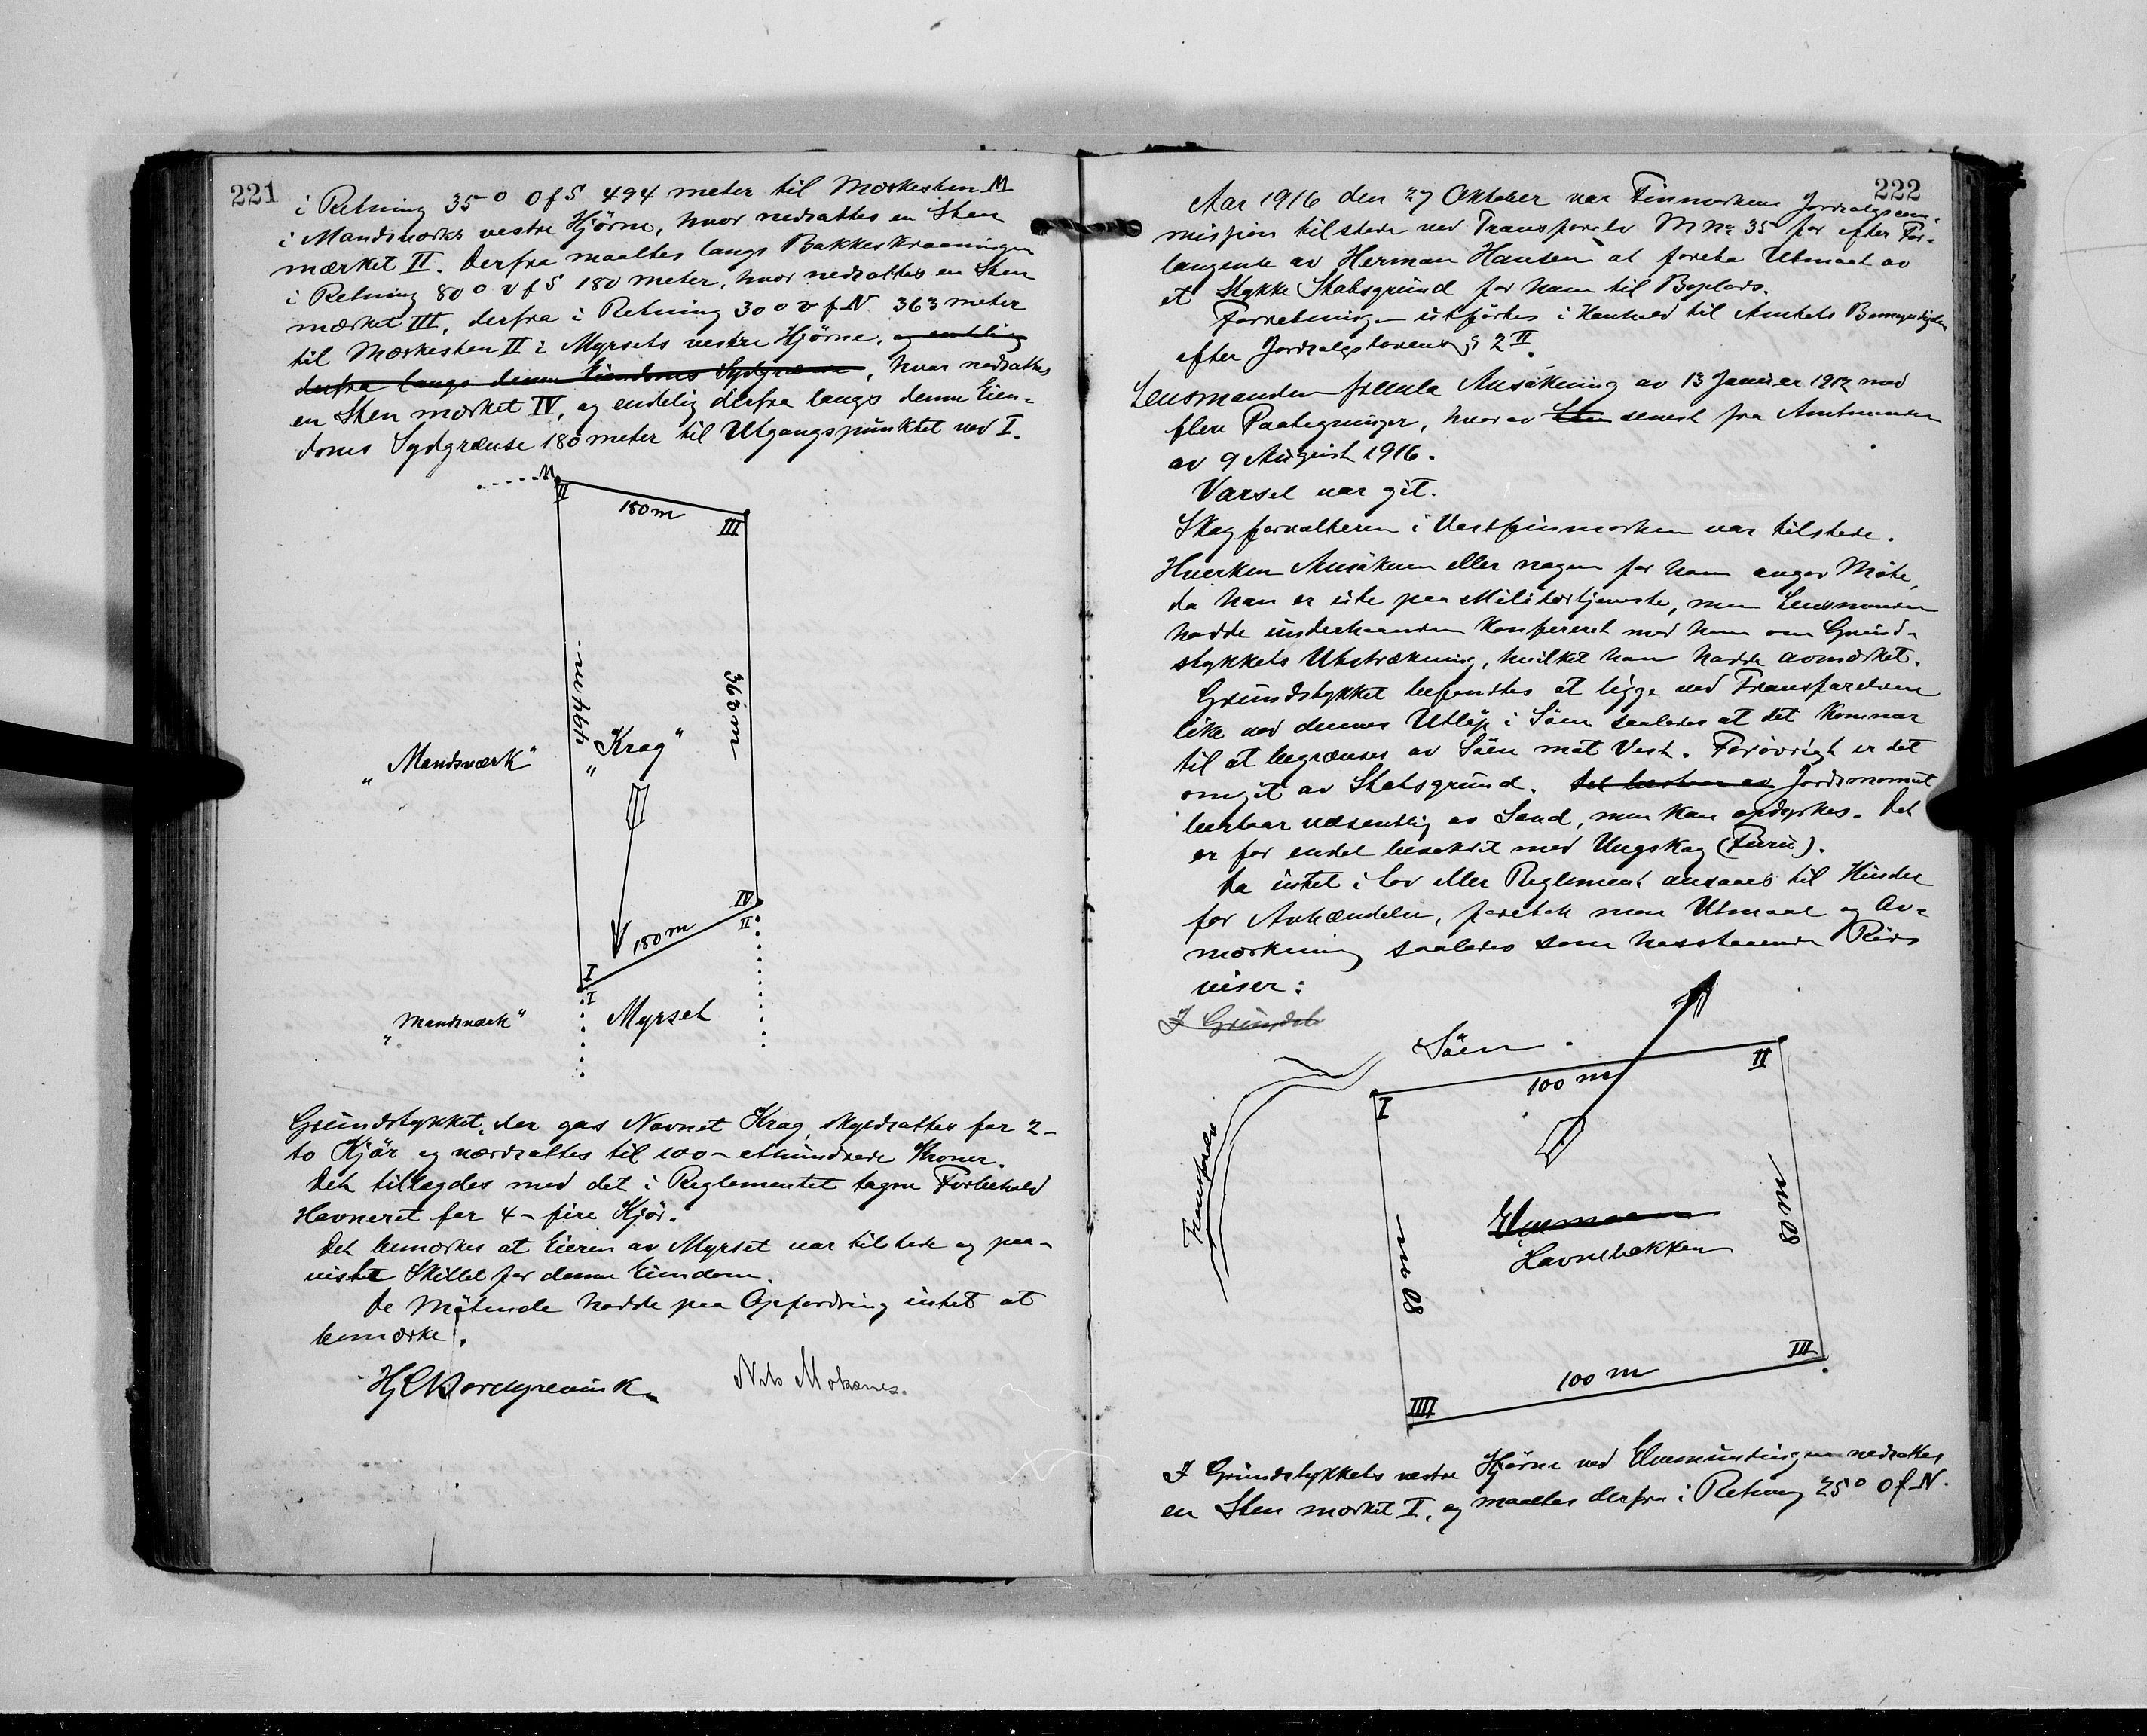 221
i Retning 35° O f S 494 meter til Mærkesten M
i Mandsværks vestre Hjörne, hvor nedsattes en Sten
mærket II. Derfra maaltes langs Bakkeskraaningen
i Retning 80° V f S 180 meter, hvor nedsattes en Sten
mærket III, derfra i Retning 30° V f N 363 meter
til Mærkesten II i Myrsets vestre Hjörne, og endelig
derfra langs denne Eiendoms Sydgrænse, hvor nedsattes
en Sten mærket IV, og endelig derfra langs denne Eien-
doms Sydgrænse 180 meter til Utgangspunktet ved I.
M
II
180 m
III
494 m.
363 m
"Krag"
"Mandsværk"
IV
II
180 m
I
I
"Mandsværk"
Myrset
Grundstykket, der gas Navnet Krag, skyldsattes for 2-
to Kjör og værdsattes til 100 - ethundrede Kroner.
Det tillagdes med det i Reglementet tagne Forbehold
Havneret for 4 - fire Kjör.
Det bemærkes at Eieren av Myrset var tilstede og paa-
viste Skillet for denne Eiendom.
De Mötende hadde paa Opfordring intet at
bemærke.
Nils Moksnes.
222
Aar 1916 den 27 Oktober var Finmarkens Jordsalgscom-
mission tilstede ved Transfarelv M No 35 for efter For-
langende av Herman Hansen at foreta Utmaal av
et Stykke Statsgrund for ham til Boplads.
Forretningen utförtes i Henhold til Amtets Bemyndigelse
efter Jordsalgslovens § 2 II.
Lensmanden fremla Ansökning av 13 Januar 1912 med
flere Paategninger, hvorav senest fra Amtmanden
av 9 August 1916.
Varsel var git.
Skogforvalteren i Vestfinmarken var tilstede.
Hverken Ansökeren eller nogen for ham angav Möte,
da han er ute paa Militærtjeneste, men Lensmanden
hadde underhaanden konfereret med ham om Grund-
stykkets Utstrækning, hvilket han hadde avmærket.
Grundstykket befandtes at ligge ved Transfarelven
like ved dennes Utlöp i Söen saaledes at det kommer
til at begrænses av Söen mot Vest. Forövrigt er det
omgit av Statsgrund. Det bestaar av Jordsmonnet
bestaar væsentlig av Sand, men kan opdyrkes. Det
er for endel bevokset med Ungskog (Furu).
Da intet i Lov eller Reglement ansaaes til Hinder
for Avhændelse, foretok man Utmaal og Av-
mærkning saaledes som hosstaaende Rids
viser:
I Grundst
Söen
100 m
I
II
Transfarelv
80 m
80 m
Havnebakken
III
100 m
IIII
I Grundstykkets vestre Hjörne ved Elvemundingen nedsattes
en Sten mærket I, og maaltes derfra i Retning 25° O f N.